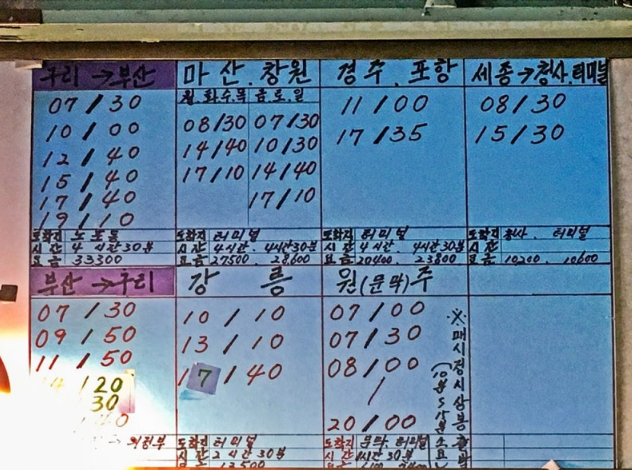 구리→부산
07/30
10/00
12/40
15/40
17/40
19/10
도착지 노포동
시간 4시간30분
요금 33300
마산.창원
월화수목 금토일
08/30 07/30
14/40 10/30
17/10 14/40
17/10
도착지 터미널
시간 4시간. 4시간30분
요금 27500. 28600
경주.포항
11/00
17/35
도착지 터미널
시간 4시간. 4시간30분
요금 20400. 23800
세종→청사.터미널
08/30
15/30
도착지 청사. 터미널
시간
요금 10200. 10600
부산→구리
07/30
09/50
11/50
/20
30
의정부
강릉
10/10
13/10
17/40
도착지 터미널
시간 2시간30분
요금
원(문막)주
07/00
07/30
08/00
/
20/00
※매시정시상봉출발
도착지 문막. 터미널
시간
요금